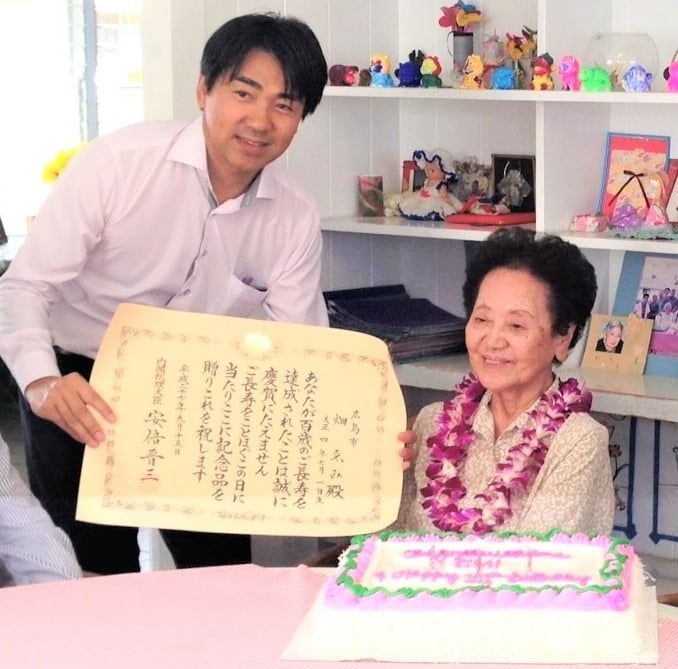 広島市
畑 殿
大正 四 年七月一日生
あなたが百歳のご長寿を
達成されたことは誠に
慶賀にたえません
ご長寿をことほぎこの日に
当たりここに記念品を
贈りこれを祝します
平成二十七年九月十五日
内閣総理大臣 安倍晋三
Congratulations
Happy Birthday